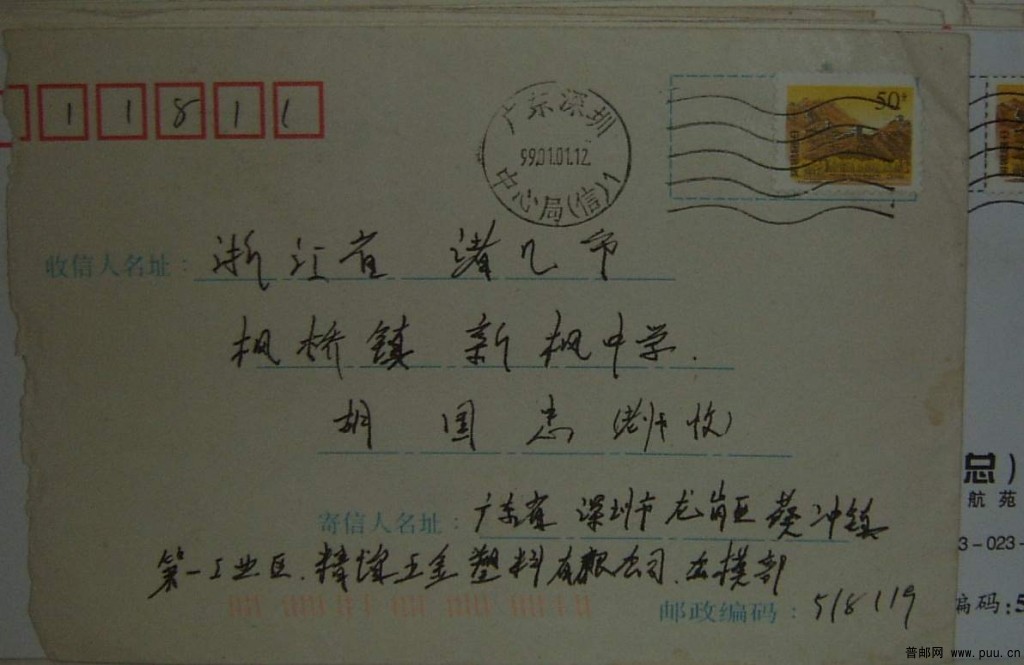 11811
50
广东深圳
99.01.01.12
中心局(信)1
收信人名址: 浙江省 诸几市
枫桥镇 新枫中学.
胡 国 志 (老师收)
寄信人名址: 广东省 深圳市龙岗区葵冲镇
第一工业区. 精 五金塑料有限公司. 模部
邮政编码: 518119
总)
航苑
3-023-
编码:5
普邮网 www.puu.cn